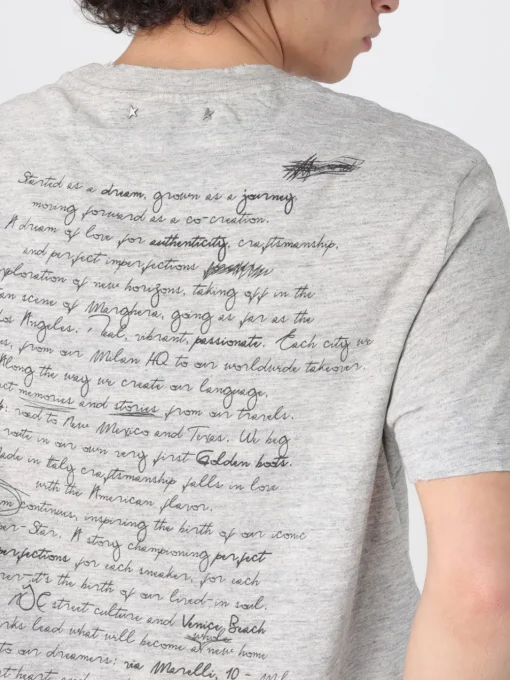 Started as a dream, grown as a journey
moving forward as a co-creation.
A dream of love for authenticity, craftsmanship,
and perfect imperfections
exploration of new horizons, taking off in the
scene of Marghera, going as far as the
Los Angeles: real, vibrant, passionate. Each city we
from our Milan HQ to our worldwide takeover.
Along the way we create our language,
memories and stories from our travels.
road to New Mexico and Texas. We beg
route in our own very first Golden boots.
Made in Italy craftsmanship falls in love
with the American flavor.
continues, inspiring the birth of our iconic
er-Star. A story championing perfect
perfections for each sneaker, for each
it's the birth of our lived-in soul.
street culture and Venice Beach
whole
lead what will become a new home
to our dreamers: via Morelli, 10 -